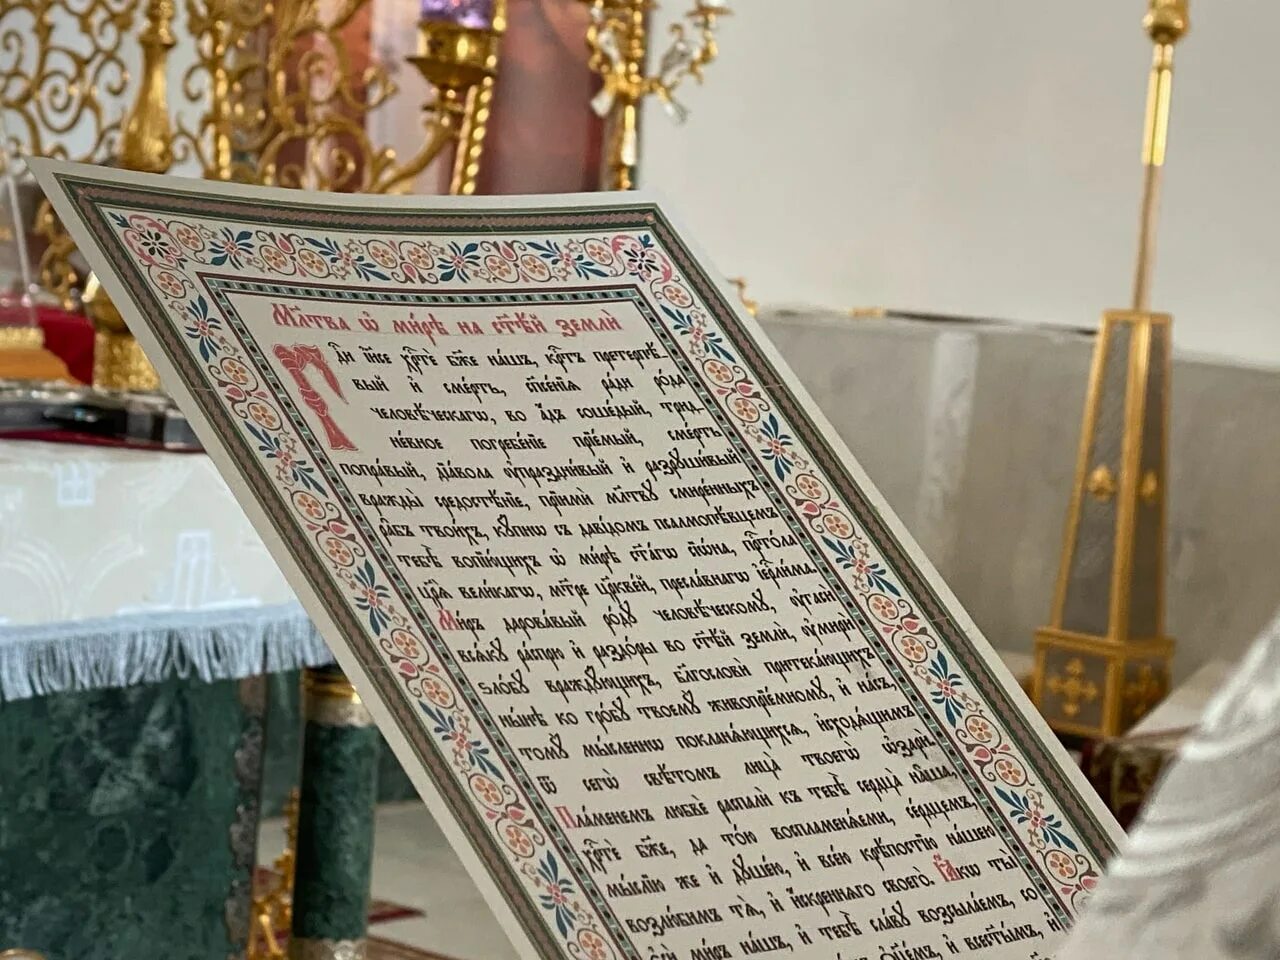 Мл҃тва ѡ҆ ми́рѣ на ст҃ѣ́й землѝ
Гдⷭ҇и і҆и҃се хрⷭ҇тѐ бж҃е на́шъ, крⷭ҇тъ претерпѣ́-
вый и҆ сме́рть, сп҃се́нїѧ ра́ди ро́да
человѣ́ческагѡ, во а҆́дъ соше́дый, трид-
не́вное погребе́нїе прїе́мый, сме́рть
попра́вый, дїа́вола ᲂу҆праздни́вый и҆ разрꙋши́вый
вражды̀ средостѣ́нїе, прїимѝ мл҃твꙋ смире́нныхъ
ра̑бъ твои́хъ, кꙋ́пнѡ съ даві́домъ псалмопѣ́вцемъ
тебѣ̀ вопїю́щихъ ѡ҆ ми́рѣ ст҃а́гѡ сїѡ́на, прⷭ҇то́ла
цр҃ѧ̀ вели́кагѡ, мт҃ре цр҃кве́й, пресла́внагѡ і҆ерⷭ҇ли́ма.
Ми́ръ дарова́вый ро́дꙋ человѣ́ческомꙋ, ᲂу҆гасѝ
всѧ́кꙋ ра́спрю и҆ раздо́ры во ст҃ѣ́й землѝ, ᲂу҆мирѝ
ѕло́бꙋ враждꙋ́ющихъ, бл҃гословѝ притека́ющихъ
ны́нѣ ко гро́бꙋ твоемꙋ̀ живопрїе́мномꙋ, и҆ на́съ,
томꙋ̀ мы́сленнѡ поклонѧ́ющихсѧ, и҆сходѧ́щимъ
ѿ сегѡ̀ свѣ́томъ лица̀ твоегѡ̀ ѡ҆зарѝ.
Пла́менемъ любвѐ распалѝ къ тебѣ̀ сердца̀ на̑ша,
хрⷭ҇тѐ бж҃е, да то́ю воспламенѧ́еми, се́рдцемъ,
мы́слїю же и҆ дꙋше́ю, и҆ все́ю крѣ́постїю на́шею
возлю́бимъ тѧ̀, и҆ и҆́скреннѧго своего̀. Ꙗ҆́кѡ ты̀
є҆сѝ ми́ръ на́шъ, и҆ тебѣ̀ сла́вꙋ возсыла́емъ, со
ѻ҆ц҃е́мъ, и҆ всест҃ы́мъ, и҆